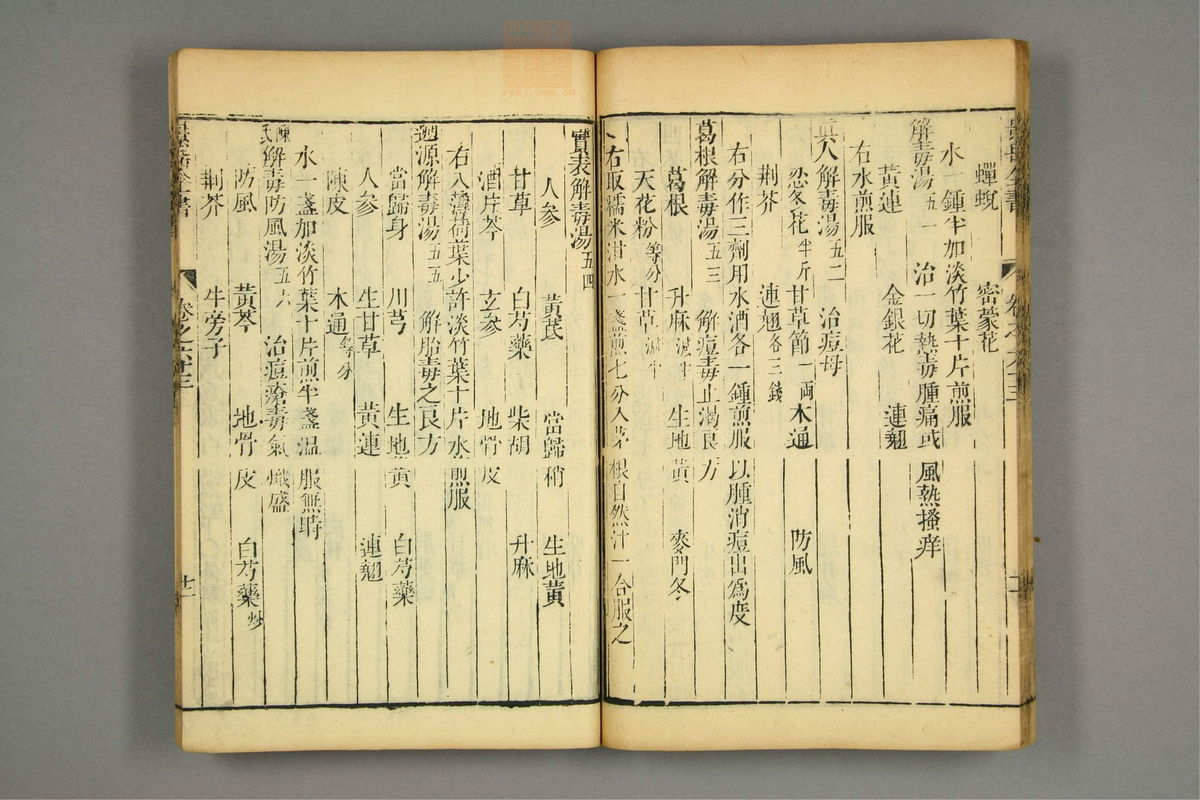 蟬蛻 密蒙花
水一鍾半加淡竹葉十片煎服
解毒湯五一 治一切熱毒腫痛或風熱搔痒
黃連 金銀花 連翹
右水煎服
真人解毒湯五二 治痘母
忍冬花半斤 甘草節一兩 木通 防風
荆芥 連翹各三錢
右分作三劑用水酒各一鍾煎服以腫消痘出爲度
葛根解毒湯五三 解痘毒止渴良方
葛根 升麻減半 生地黃 麥門冬
天花粉等分 甘草減半
右取糯米泔水一盞煎七分入茅根自然汁一合服之
實表解毒湯五四
人參 黃芪 當歸稍 生地黃
甘草 白芍藥 柴胡 升麻
酒片芩 玄參 地骨皮
右入薄荷葉少許淡竹葉十片水煎服
遡源解毒湯五五 解胎毒之良方
當歸身 川芎 生地黃 白芍藥
人參 生甘草 黃連 連翹
陳皮 木通等分
水一盞加淡竹葉十片煎半盞溫服無時
陳氏解毒防風湯五六 治痘瘡毒氣熾盛
防風 黃芩 地骨皮 白芍藥炒
荆芥 牛旁子
卷之六十三